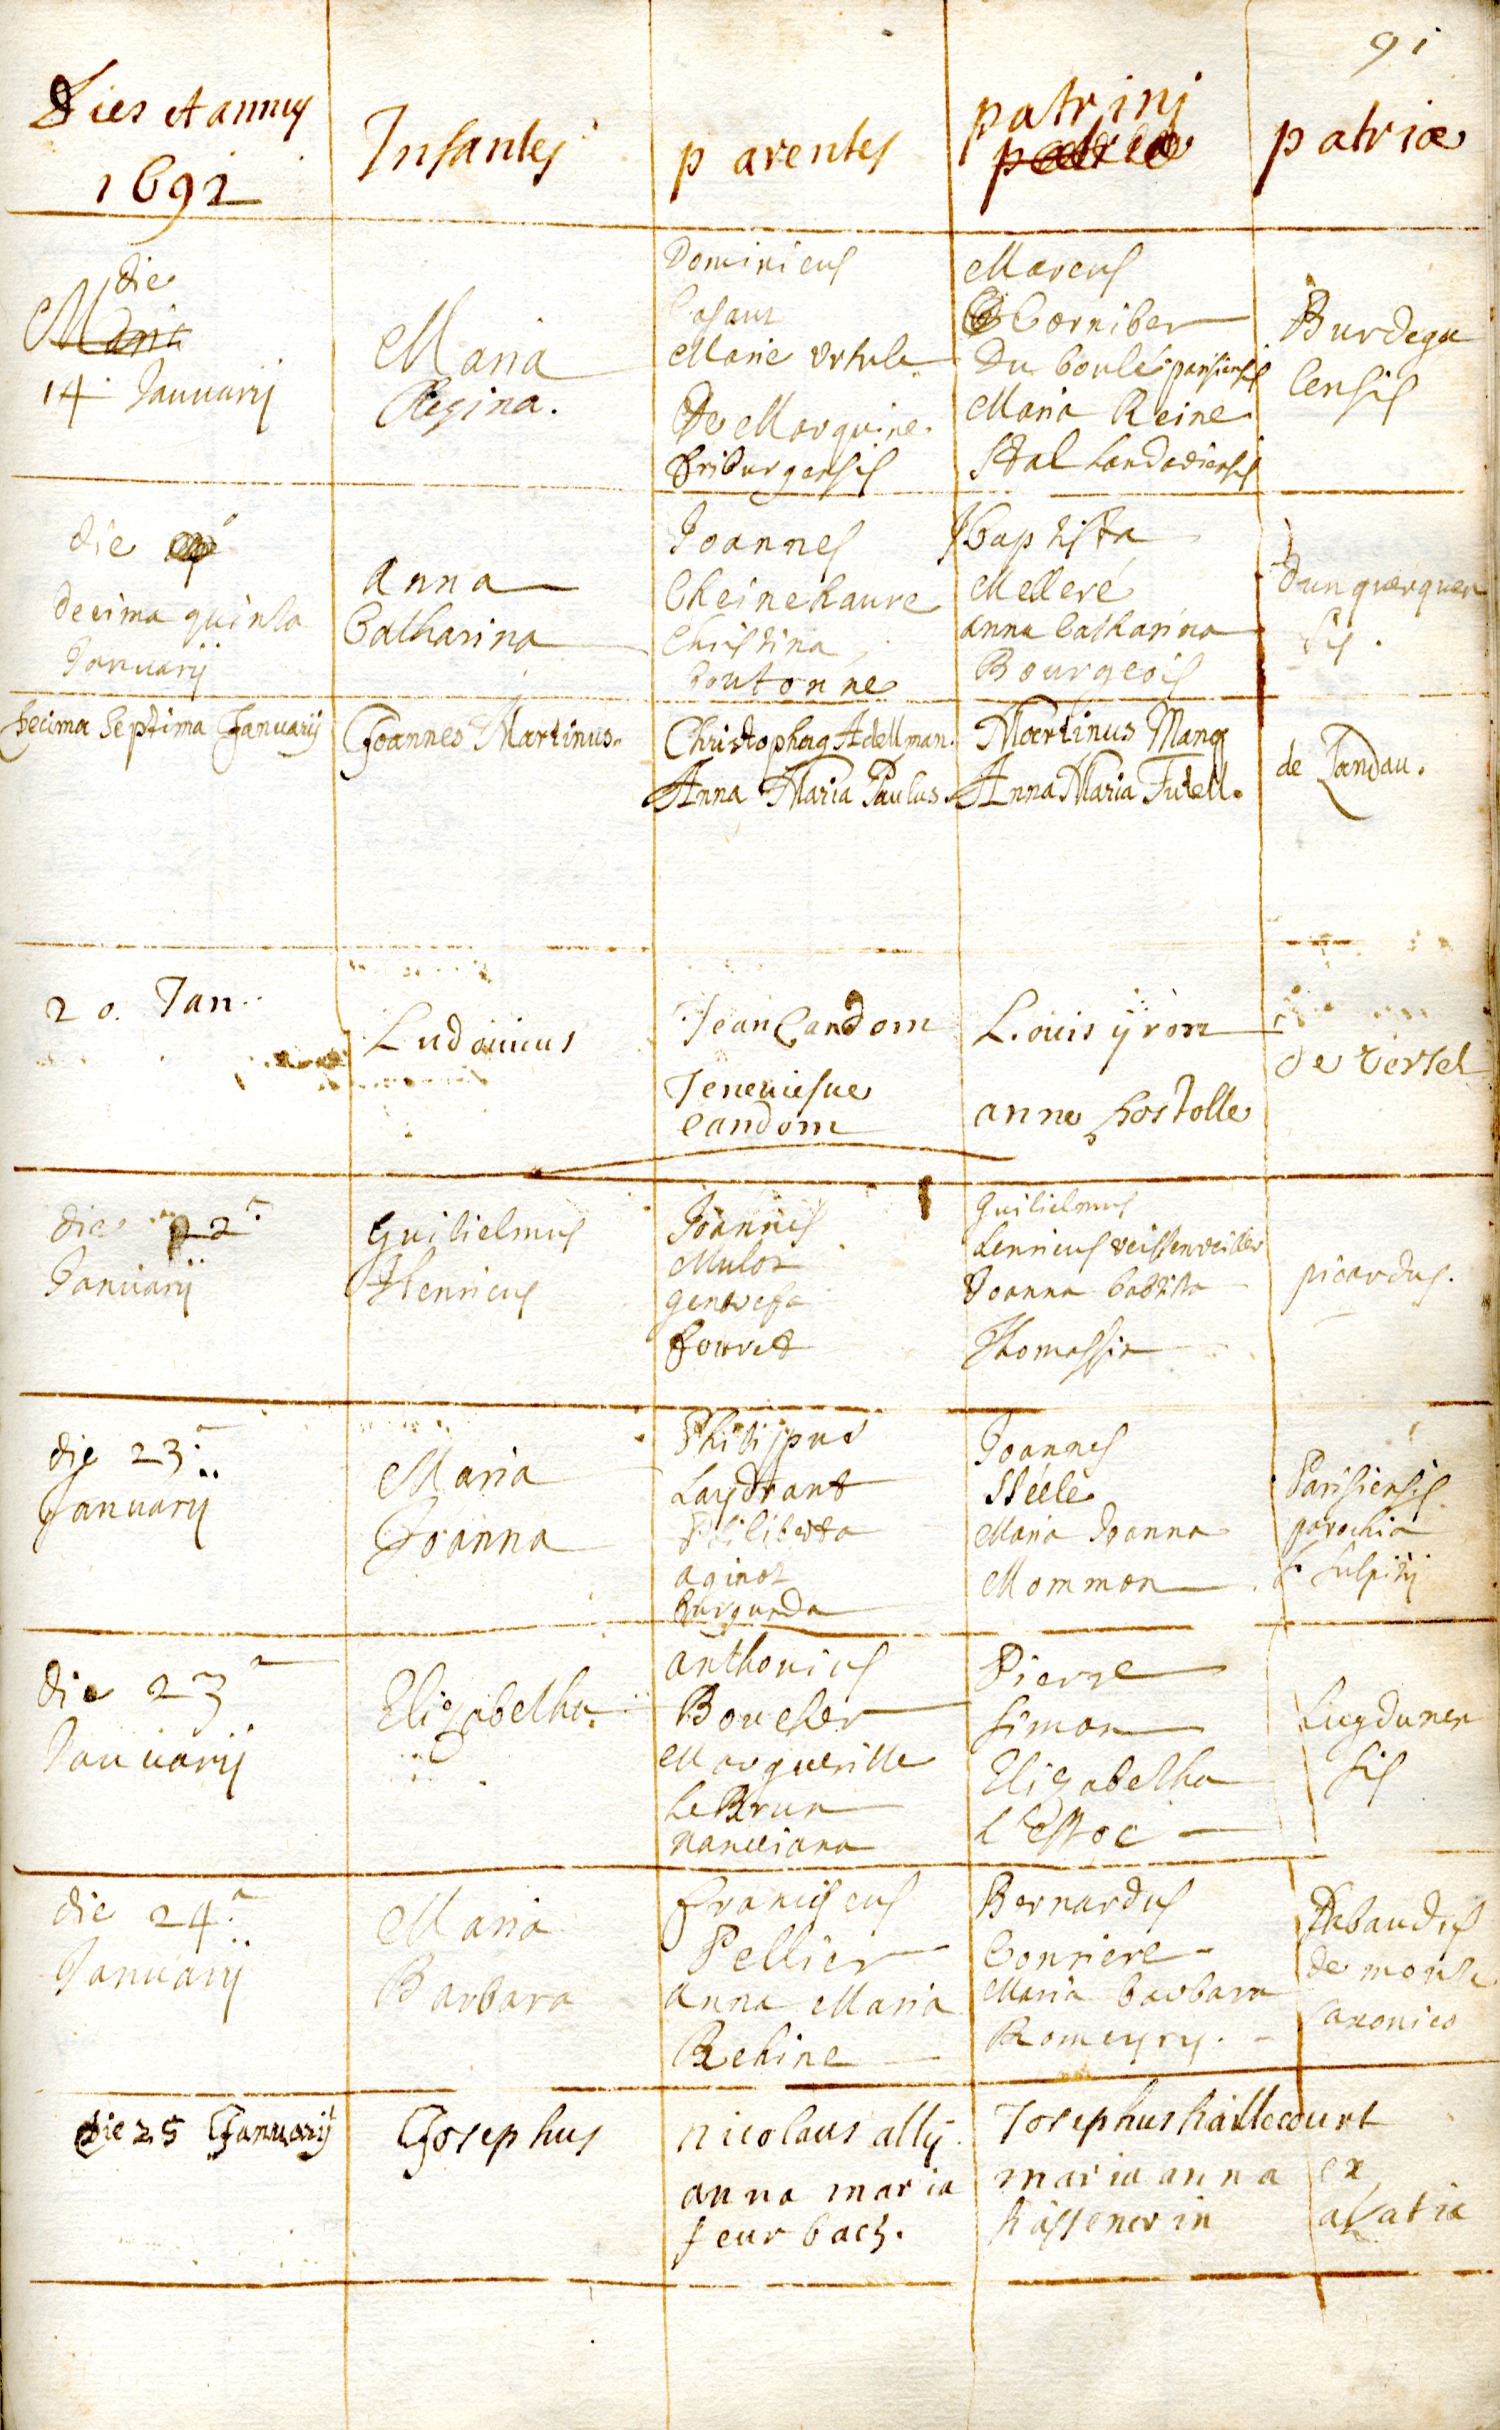 91
Dies et annus
1692
Infantes
parentes
patrini
patriæ
die
14 Januarij
Maria
Regina.
Dominicus
Casaux
Marie Ursule
De Marquine
friburgensis
Marcus
Du boulé parisiensis
Maria Reine
Stal Landaviensis
Burdega
lensis
die
decima quinta
Januarij
Anna
Catharina
Joannes
Cheinehaure
Christina
boutonne
Baptista
Melleré
Anna Catharina
Bourgeois
Dunquerquen
sis.
Decima Septima Januarij
Joannes Martinus.
Christophorus Adellman.
Anna Maria Paulus.
Martinus Mang
Anna Maria Futell.
de Landau.
20. Jan.
Ludovicus
Jean Candom
Jeneuiefue
Candom
Louis ÿron
anne hostolle
de versel
die 22a
Januarij
Guilielmus
Henricus
Joannes
Mulot
genovefa
fouret
Guilielmus
henricus veissenveiller
Joanna babtista
Thomassin
picardus.
die 23a
Januarij
Maria
Joanna
Philippus
Laydrant
Philiberta
aginot
Burgunda
Joannes
Stéele
Maria Joanna
Mommon
Parisiensis
parochia
S. Sulpitij
die 23a
Januarij
Elizabetha
Anthonius
Boucher
Margueritte
Le Brun
nanceiana
Pierre
Simon
Elizabetha
L'Estoc
Lugdunen
sis
die 24a
Januarij
Maria
Barbara
franciscus
Pellier
Anna Maria
Rehine
Bernardus
Conriere
Maria barbara
Romeyry.
Sabaudus
de monte
canonico
die 25 Januarij
Josephus
nicolaus allÿ
anna maria
feurbach.
Josephus haillecourt
maria anna
hassenerin
ex
alsatia